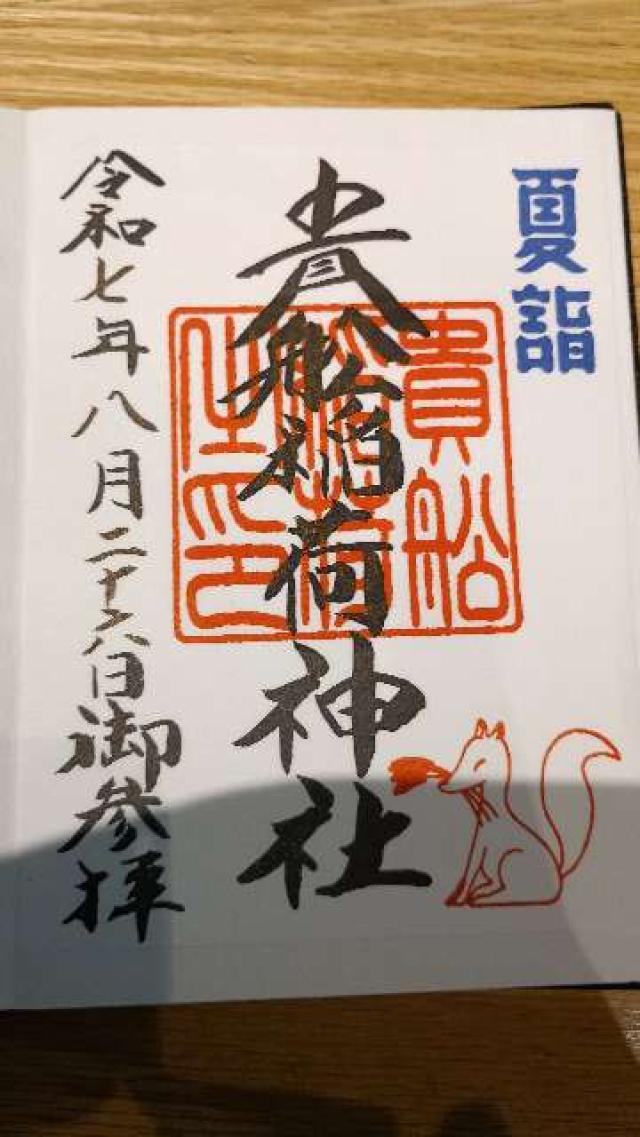 夏詣
貴船稲荷神社
貴船
稲荷
令和七年八月二十六日御参拝